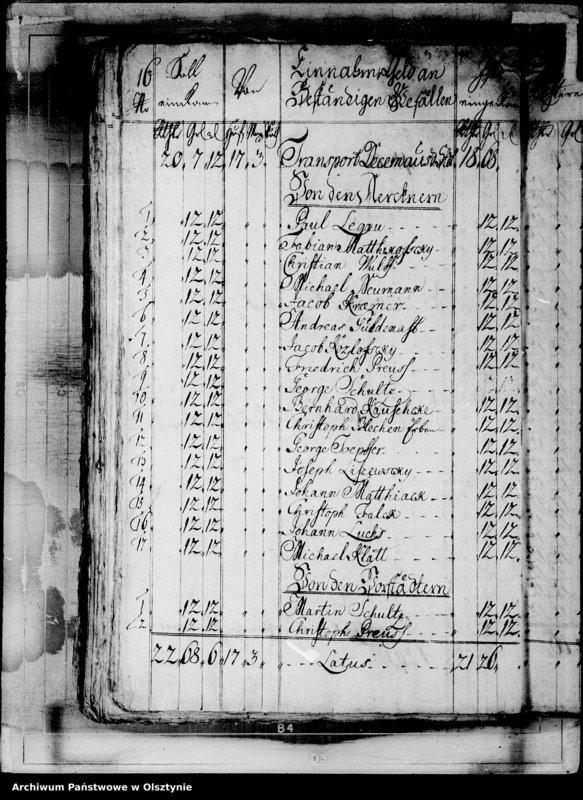 16 Soll Von Einnahme Geld an
No einkom Beständigen Gefällen
20. 7. 12. 17. 3. Transport Decem aus 18. 68.
Von den Mercknern
1. 12. 12. Paul Legau 12. 12.
2. 12. 12. Fabian 12. 12.
3. 12. 12. Christian Wulff 12. 12.
4. 12. 12. Michael Neumann 12. 12.
5. 12. 12. Jacob Kræmer 12. 12.
6. 12. 12. Andreas 12. 12.
7. 12. 12. Jacob Kozlofscky 12. 12.
8. 12. 12. Friedrich Preuss 12. 12.
9. 12. 12. George Schultz
10. 12. 12. Bernhard 12. 12.
11. 12. 12. Christoph Erben 12. 12.
12. 12. 12. George Trepffer 12. 12.
13. 12. 12. Joseph Liszewscky 12. 12.
14. 12. 12. Johann Matthiack 12. 12.
15. 12. 12. Christoph Falck 12. 12.
16. 12. 12. Johann Lucks 12. 12.
17. 12. 12. Michael Klatt 12. 12.
Von den Vorstädtern
1. 12. 12. Martin Schultz 12. 12.
2. 12. 12. Christoph Preuss 12. 12.
22. 68. 6. 17. 3. Latus 21. 26.
B4
D3
Archiwum Państwowe w Olsztynie